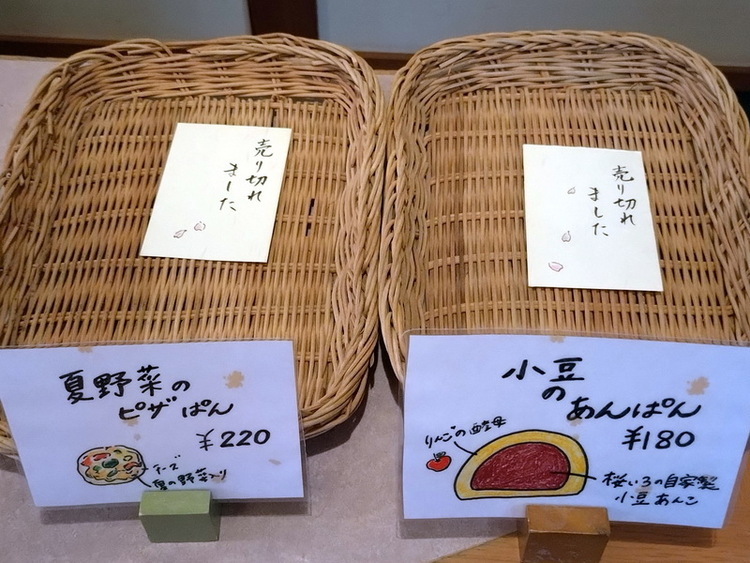 売り切れ
ました
売り切れ
ました
夏野菜の
ピザぱん
¥220
チーズ
夏の野菜入り
小豆
の
あんぱん
¥180
りんごの酵母
桜いろの自家製
小豆あんこ